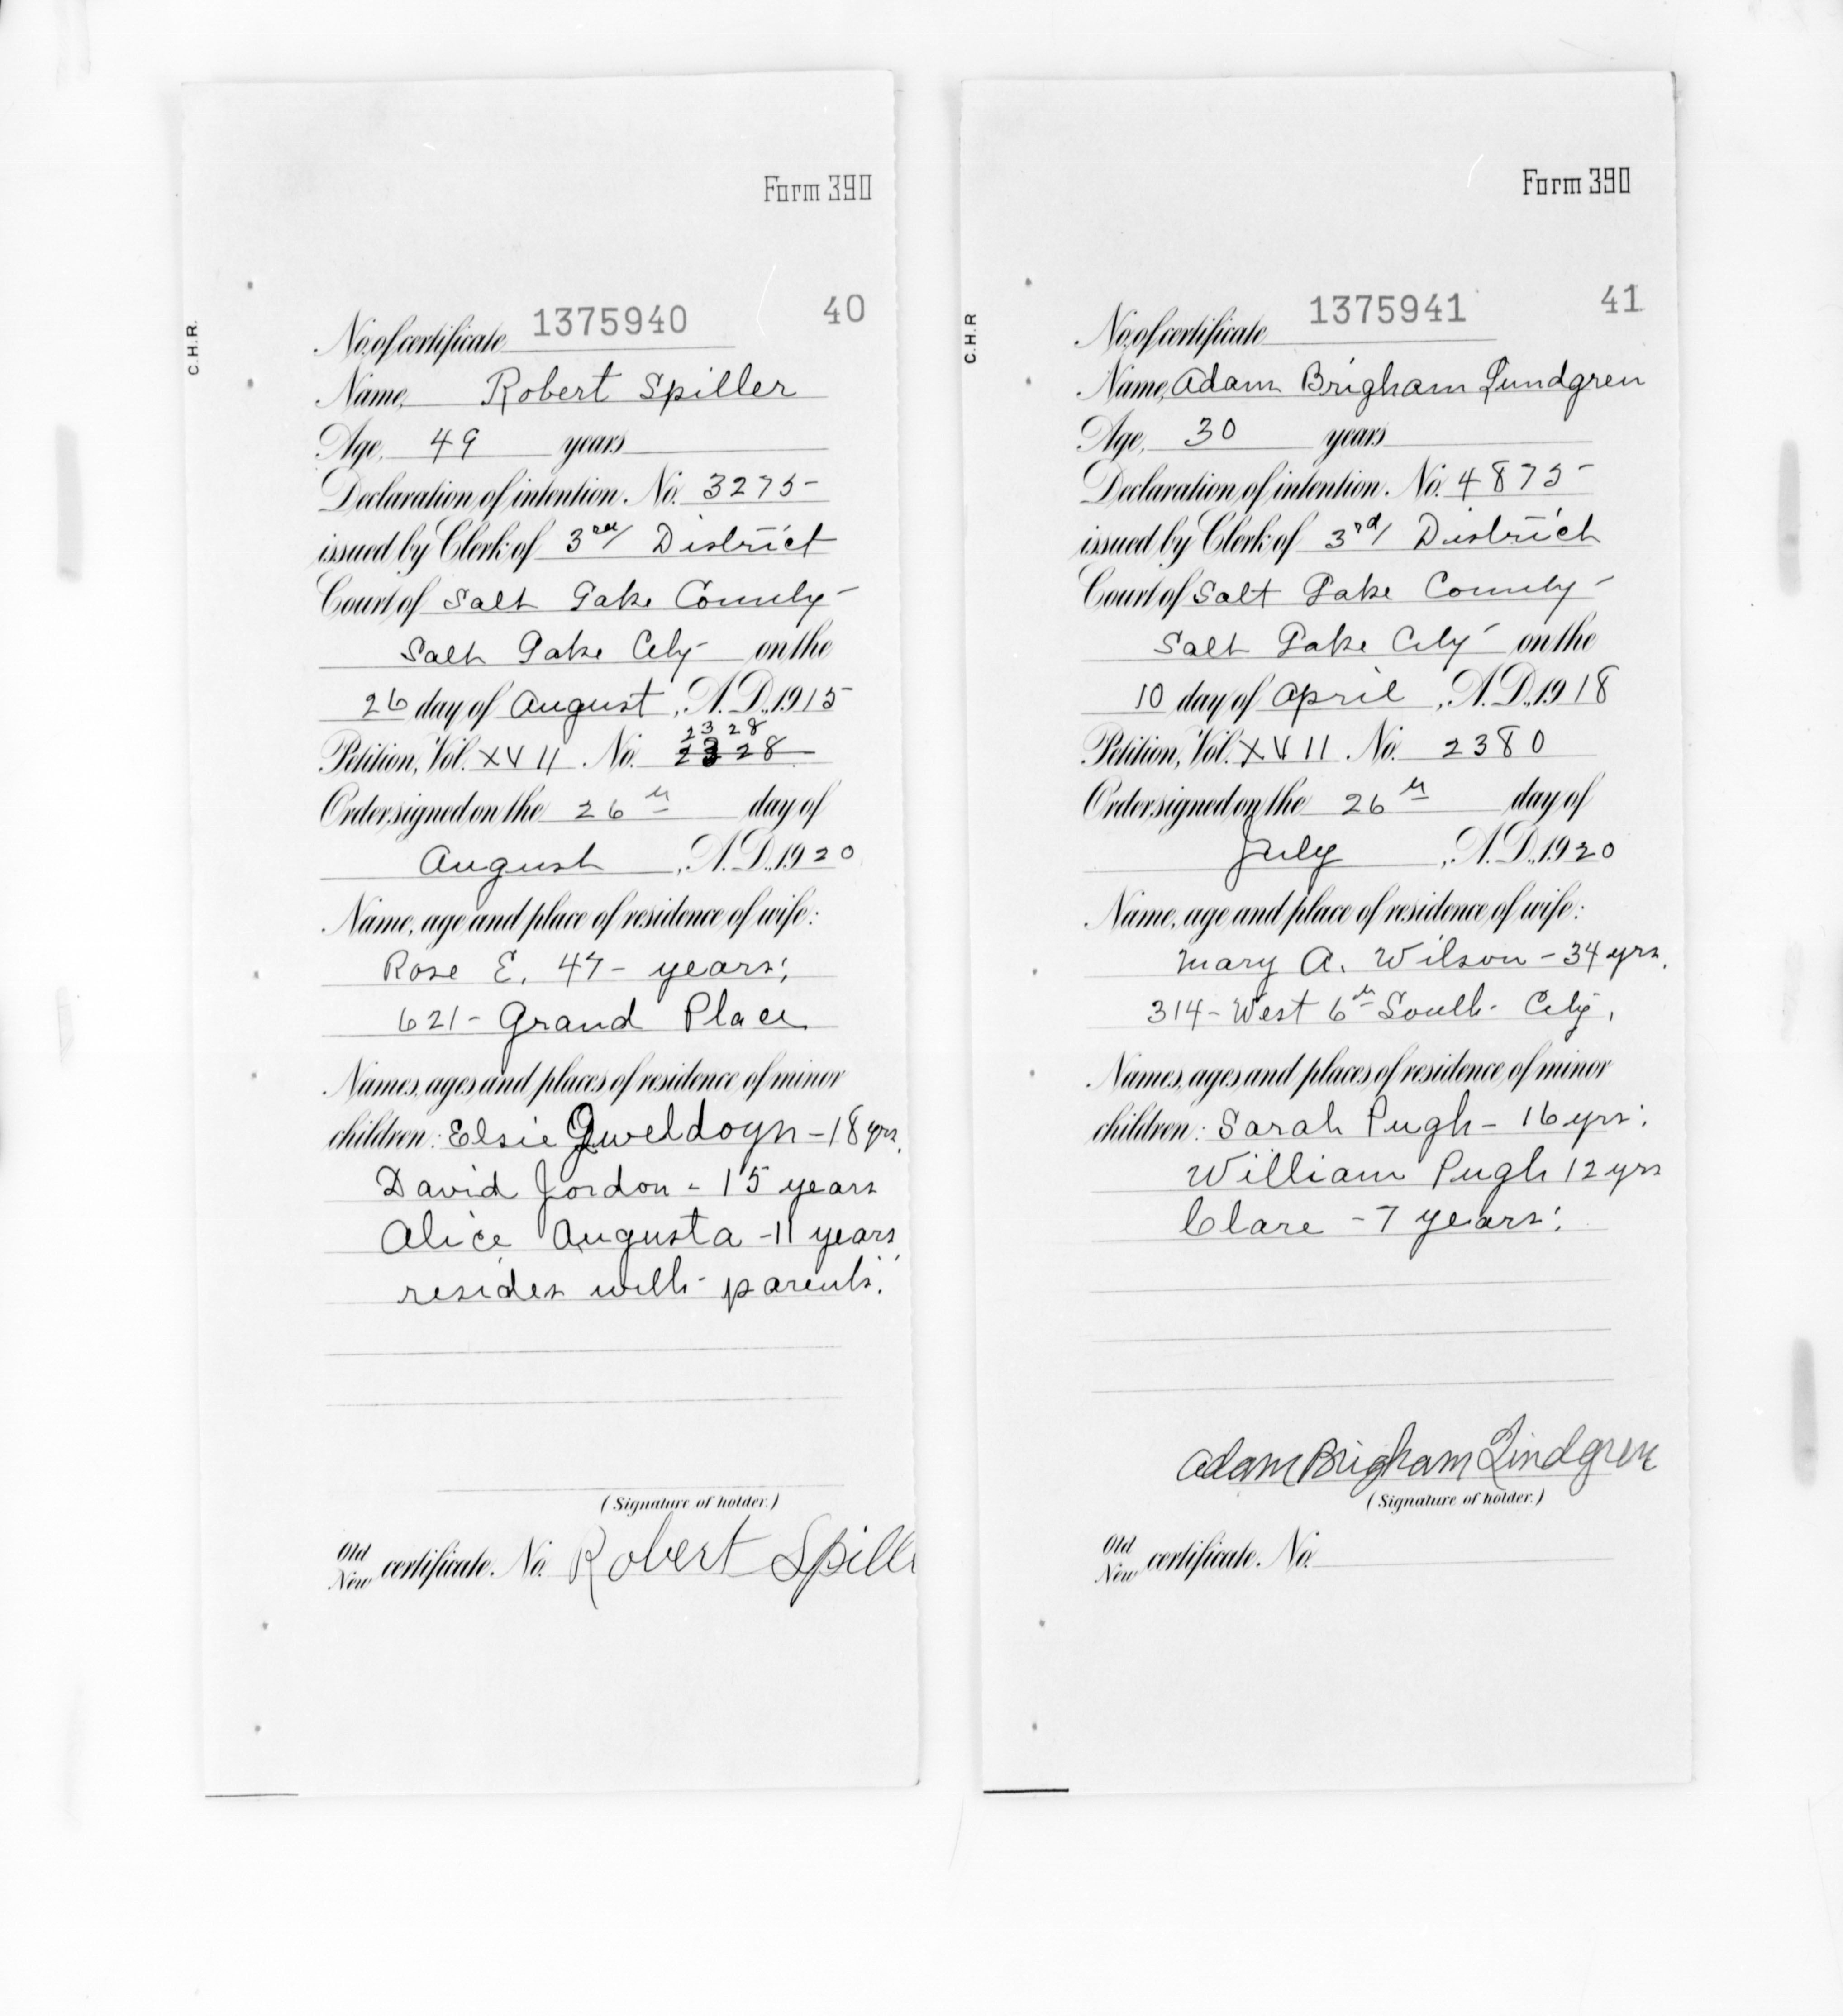 Form 390
C.H.R.
No. of certificate 1375940 40
Name, Robert Spiller
Age, 49 years
Declaration of intention. No. 3275-
issued by Clerk of 3rd District
Court of Salt Lake County-
Salt Lake City- on the
26 day of August, A.D. 1915
2328
Petition, Vol. XVII. No. 2328
Order signed on the 26th day of
August, A.D. 1920
Name, age and place of residence of wife:
Rose E. 47- years;
621- Grand Place
Names, ages and places of residence of minor
children: Elsie Gweldoyn -18 yrs.
David Jordon - 15 years
Alice Augusta -11 years
resides with parents.
(Signature of holder.)
Old
New certificate. No. Robert Spill
Form 390
C.H.R
No. of certificate 1375941 41
Name, Adam Brigham Lundgren
Age, 30 years
Declaration of intention. No. 4875-
issued by Clerk of 3rd District
Court of Salt Lake County-
Salt Lake City- on the
10 day of April, A.D. 1918
Petition, Vol. XVII. No. 2380
Order signed on the 26th day of
July, A.D. 1920
Name, age and place of residence of wife:
Mary A. Wilson - 34 yrs.
314- West 6th South- City,
Names, ages and places of residence of minor
children: Sarah Pugh- 16 yrs;
William Pugh 12 yrs
Clare -7 years;
Adam Brigham Lindgren
(Signature of holder.)
Old
New certificate. No.